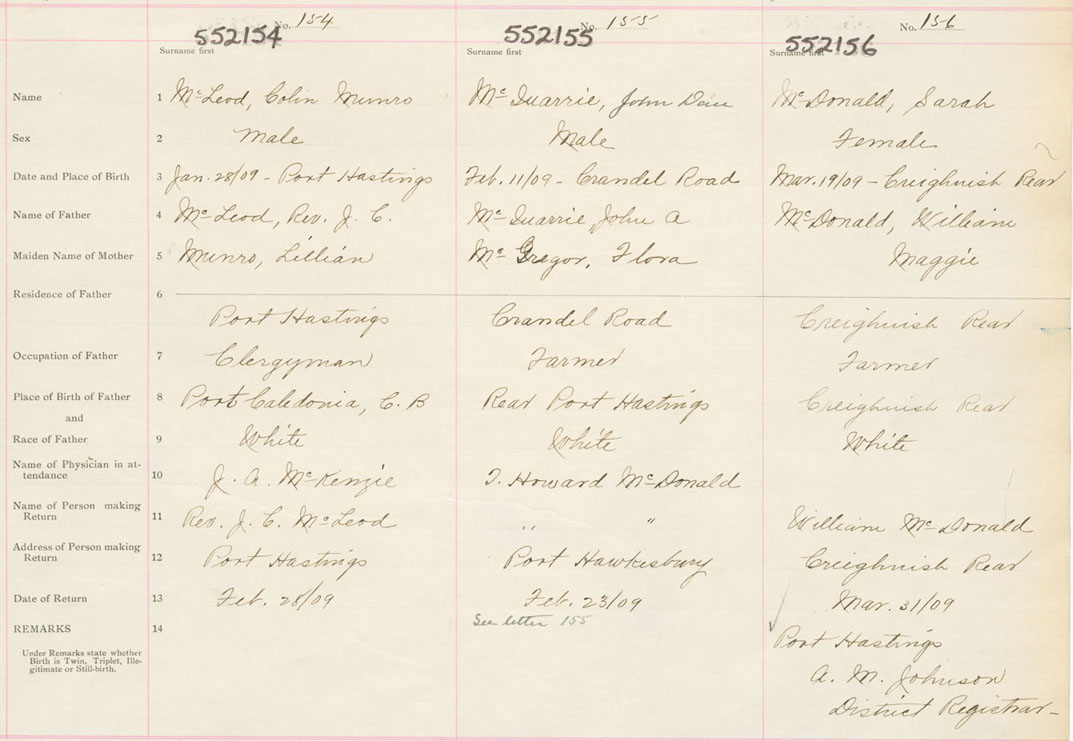 No. 154 No. 155 No. 156
552154 552155 552156
Surname first Surname first Surname first
Name 1 McLeod, Colin Munro McQuarrie, John Dan McDonald, Sarah
Sex 2 Male Male Female
Date and Place of Birth 3 Jan. 28/09 - Port Hastings Feb. 11/09 - Crandel Road Mar. 19/09 - Creighnish Rear
Name of Father 4 McLeod, Rev. J. C. McQuarrie, John A McDonald, William
Maiden Name of Mother 5 Munro, Lillian McGregor, Flora Maggie
Residence of Father 6
Port Hastings Crandel Road Creighnish Rear
Occupation of Father 7 Clergyman Farmer Farmer
Place of Birth of Father 8 Port Caledonia, C. B Rear Port Hastings Creighnish Rear
and
Race of Father 9 White White White
Name of Physician in at-
tendance 10 J. A. McKenzie Howard McDonald
Name of Person making
Return 11 Rev. J. C. McLeod " " William McDonald
Address of Person making
Return 12 Port Hastings Port Hawkesbury Creighnish Rear
Date of Return 13 Feb. 28/09 Feb. 23/09 Mar. 31/09
REMARKS 14 See letter 155 Port Hastings
Under Remarks state whether
Birth is Twin, Triplet, Ille-
gitimate or Still-birth.
A. M. Johnson
District Registrar -